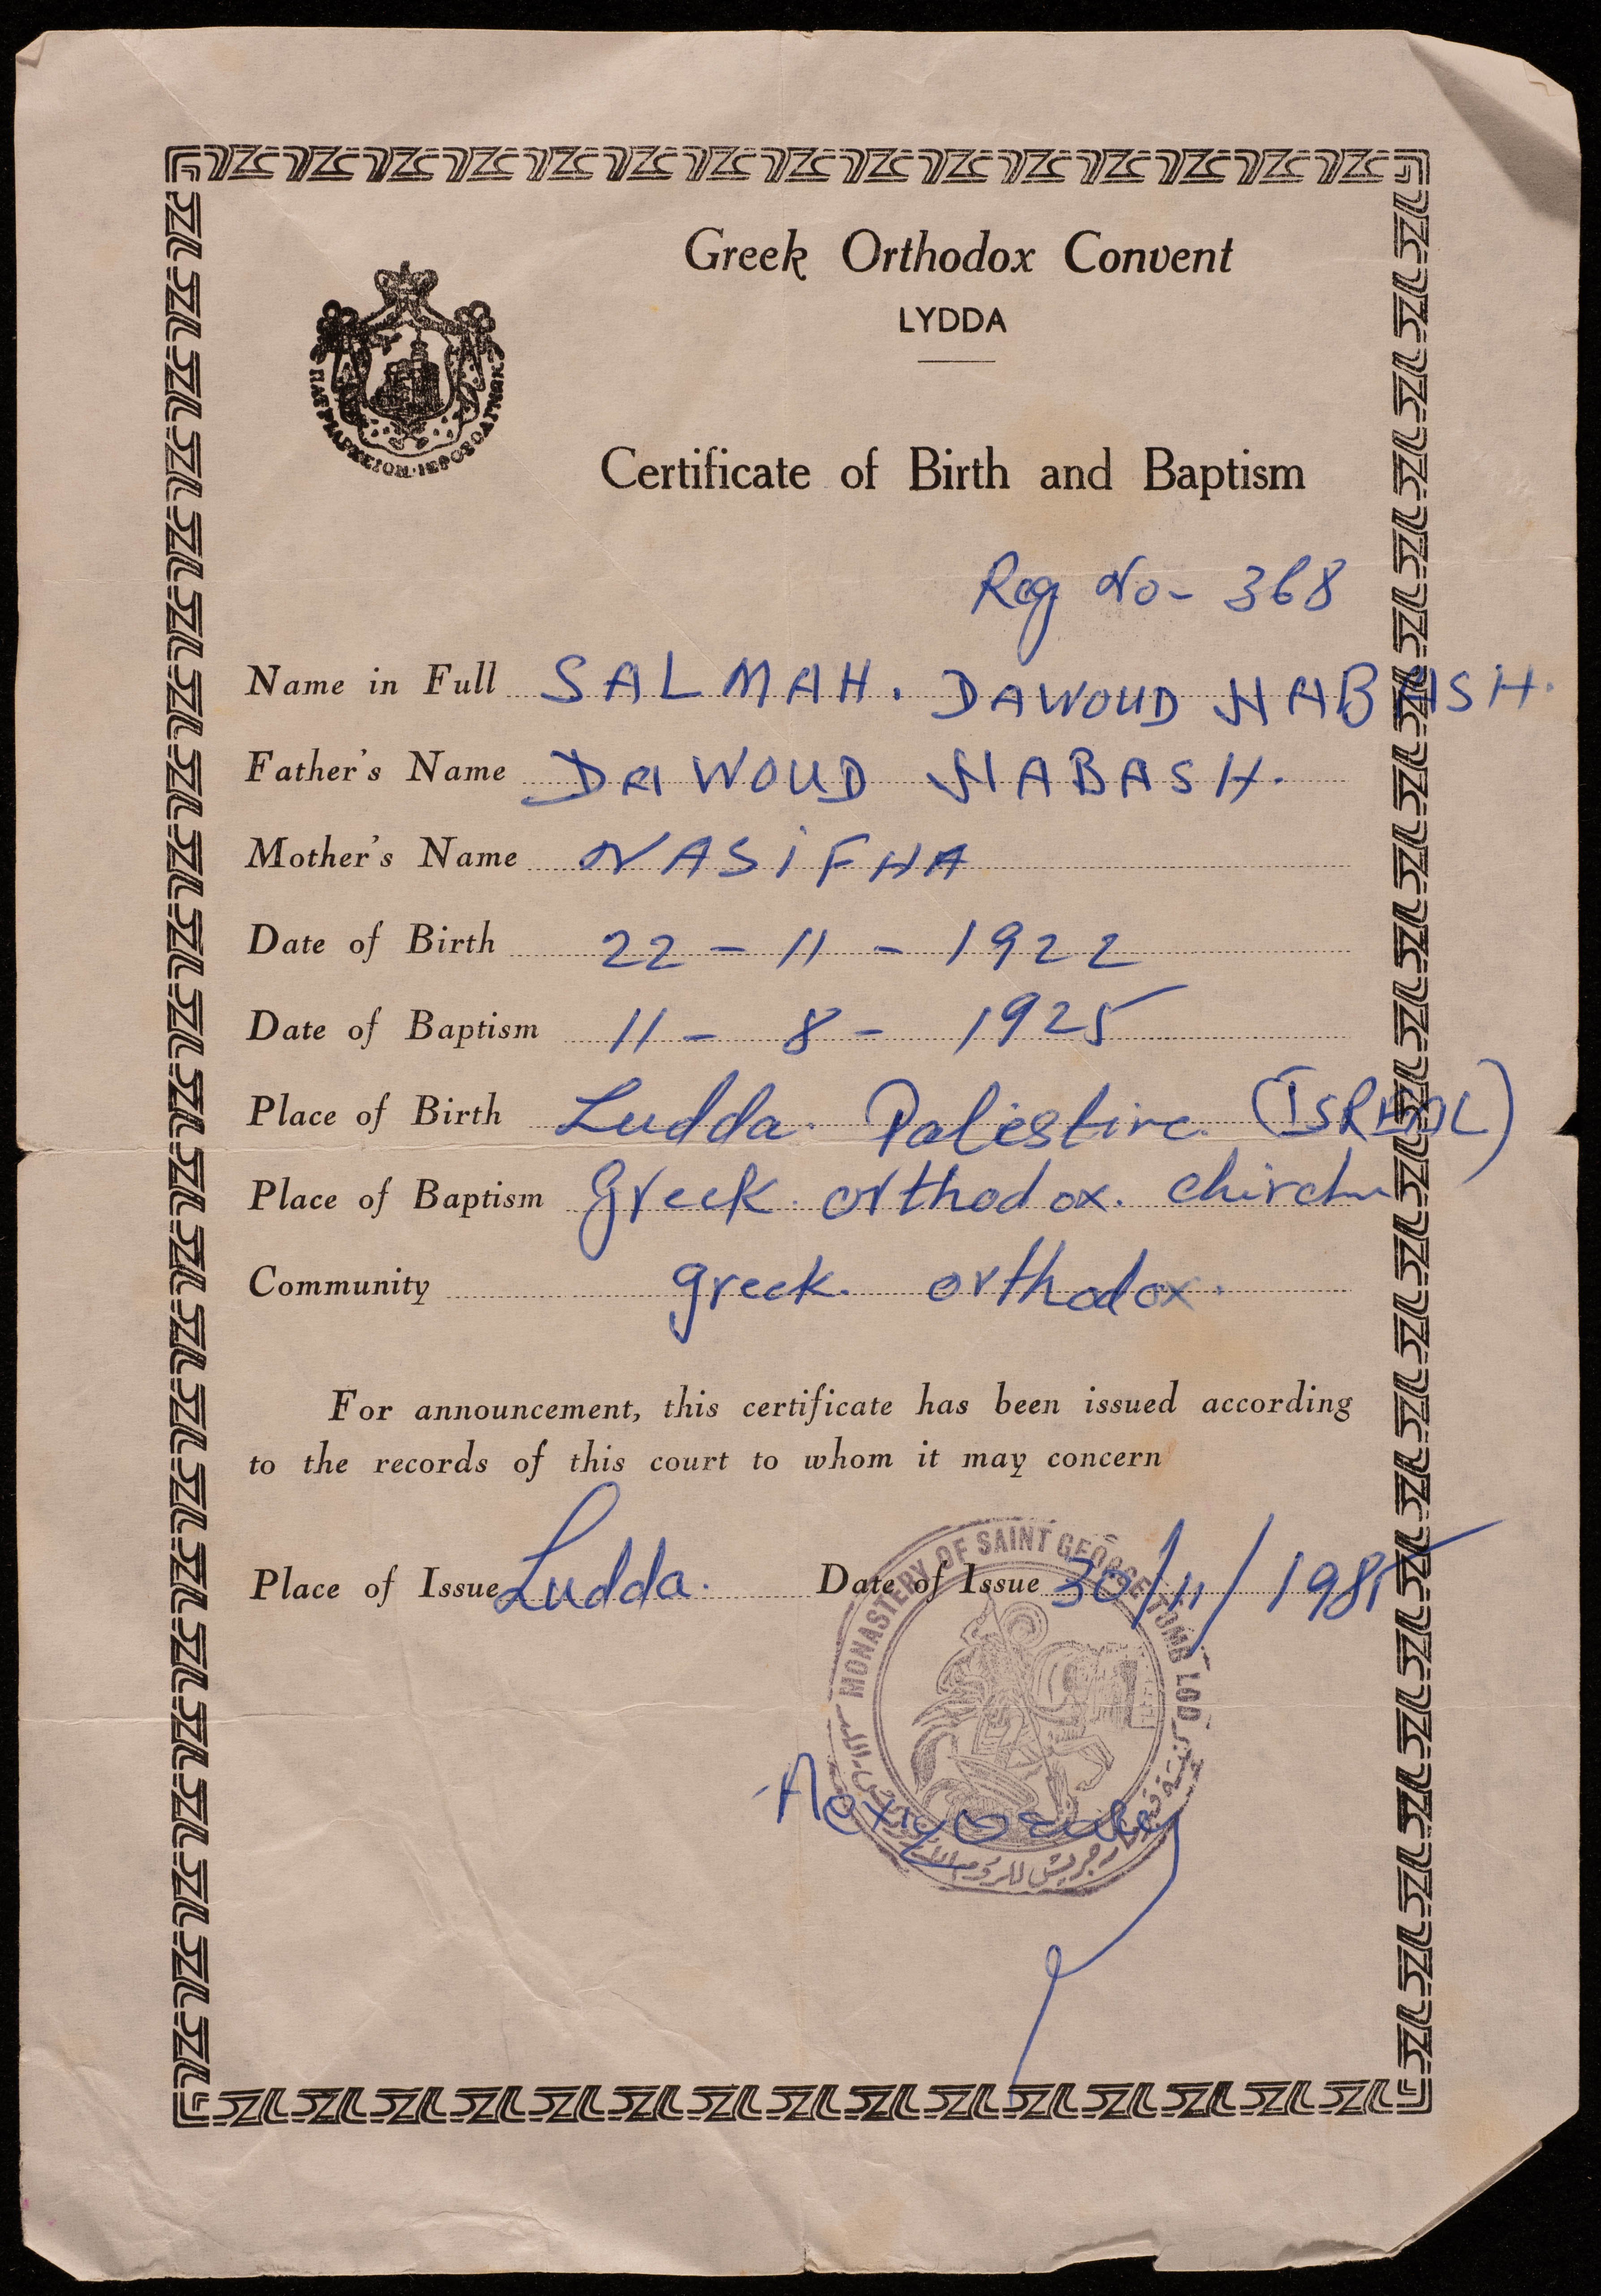 Greek Orthodox Convent
LYDDA
ΠΑΤΡΙΑΡΧΕΙΟΝ·ΙΕΡΟΣΟΛΥΜΩΝ
Certificate of Birth and Baptism
Reg No- 368
Name in Full SALMAH. DAWOUD HABASH.
Father's Name DAWOUD HABASH.
Mother's Name NASiFHA
Date of Birth 22 - 11 - 1922
Date of Baptism 11 - 8 - 1925
Place of Birth Ludda. Palestine. (ISRAEL)
Place of Baptism Greek. orthodox. chirch
Community greek. orthodox.
For announcement, this certificate has been issued according
to the records of this court to whom it may concern
Place of Issue Ludda. Date of Issue 30/11/1985
MONASTERY OF SAINT GEORGE TOMB LOD